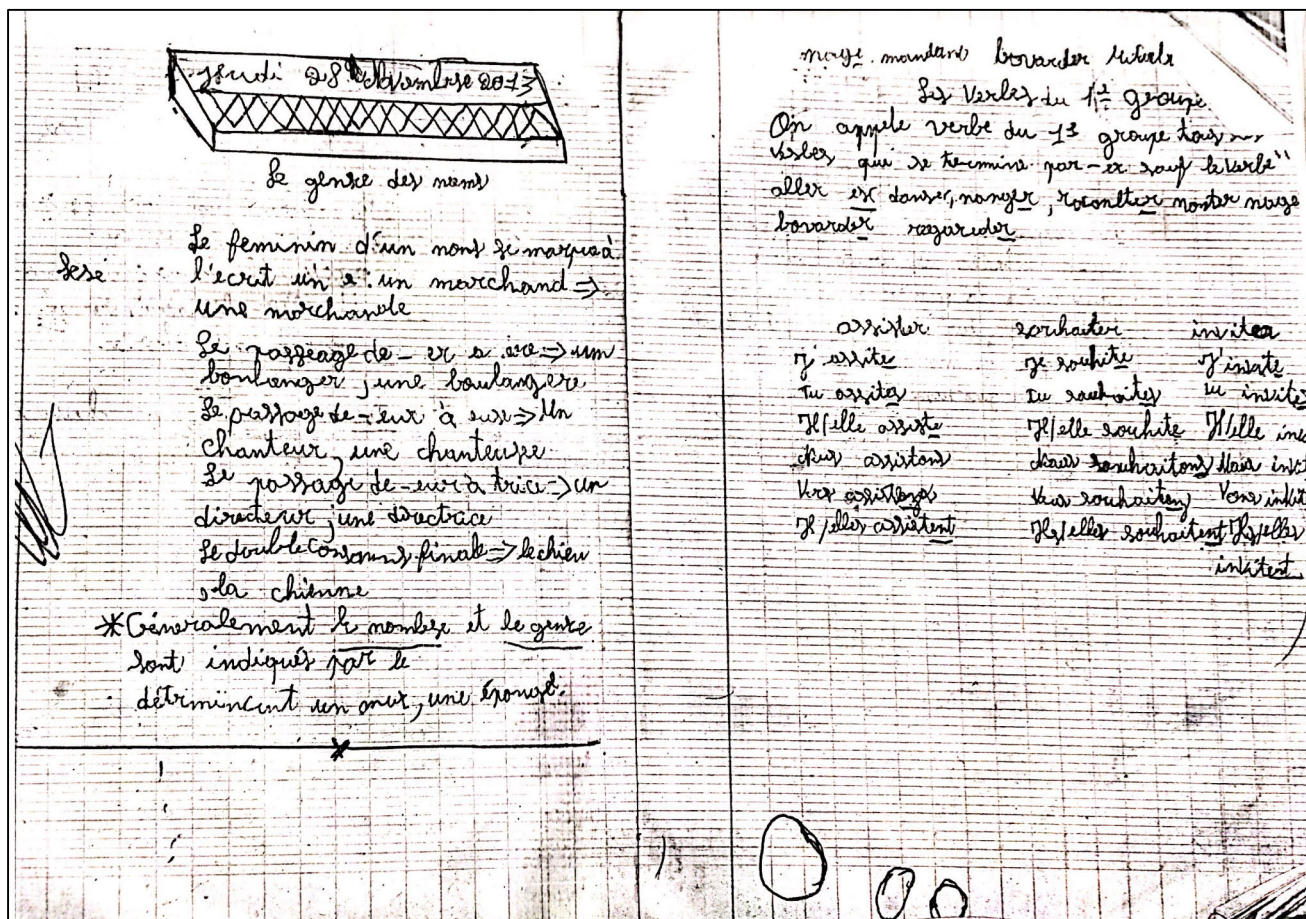 Jeudi 28 Novembre 2013
Le genre des noms
Le feminin d'un nons se marque à
l'ecrit un e. un marchand =>
une marchande
Le passeage de - er a ere => um
boulanger, une boulangere
Le passage de - eur à euse => Un
chanteur, une chanteuse
Le passage de - eur à trice => un
directeur, une directrice
Le double consonns finale => le chien
, la chienne
* Géneralement le nombre et le genre
sont indiqués par le
détrmincent un mur, une éponge.
bovarder
Les Verbes du 1er groupe
On appele verbe du 1er groupe tous
verbes qui se termine par - er sauf le verbe
aller ex danser, nanger, raconter monter
bovarder regareder
assister souhaiter inviter
J' assite Je souhite J'invite
Tu assites Tu souhaites Tu invites
Il/elle assiste Il/elle souhite Il/elle
Nous assistons Nous souhaitons Nous
Vous Vous Vous
Il/elles assistent Ils/elles souhaitent Ils/elles
invitent